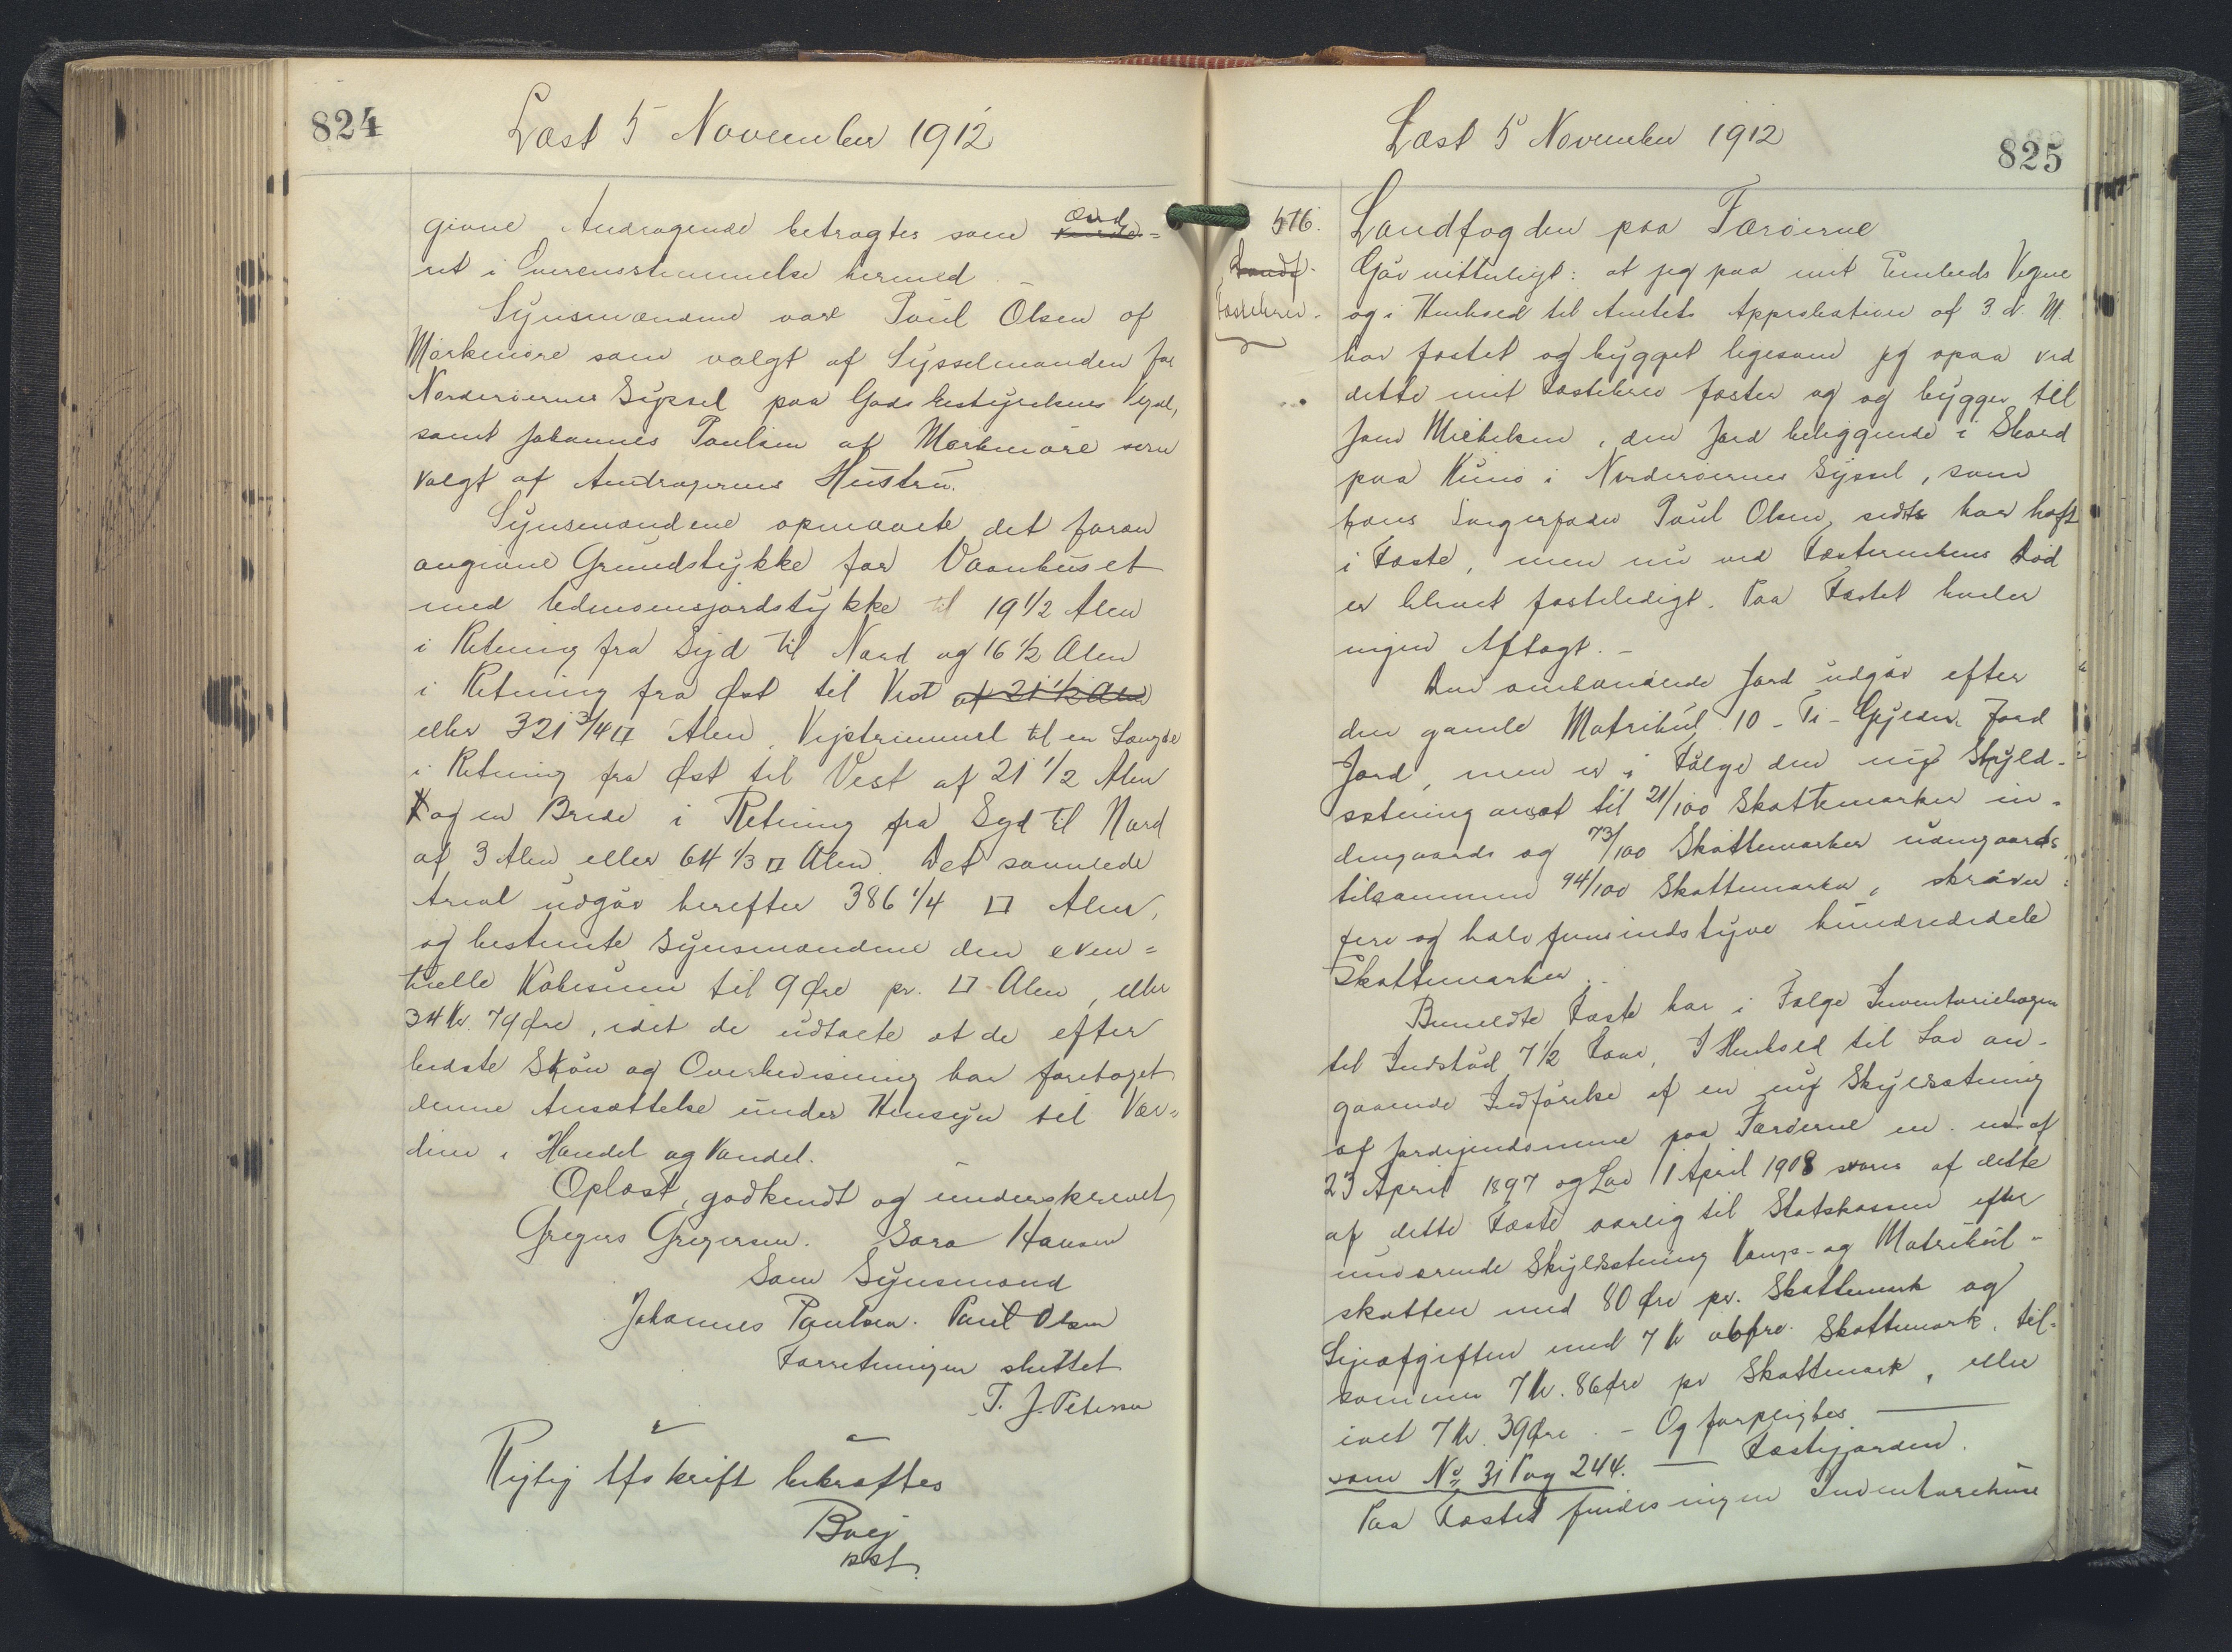 824
Læst 5 November 1912
givne Andragende betragtes som ænd
ret i Overensstemmelse hermed.
Synsmændene vare Poul Olsen af
Mørkmøre som valgt af Sysselmanden for
Norderøernes Syssel paa Godsbestyrelsens Vegne,
samt Johannes Poulsen af Mørkmøre som
valgt af Andragerens Hustru.
Synsmændene opmaalte det foran
angivne Grundstykke for Vaanhuset
med Udmøensjordstykke til 19 1/2 Alen
i Retning fra Syd til Nord og 16 1/2 Alen
i Retning fra Øst til Vest af 21 1/2 Alen
eller 321 3/4 □ Alen, Vejstrimmel til en Længde
i Retning fra Øst til Vest af 21 1/2 Alen
og en Brede i Retning fra Syd til Nord
af 3 Alen eller 64 1/3 □ Alen. Det samlede
Areal udgør herefter 386 1/4 □ Alen,
og bestemte Synsmændene den even=
tuelle Købesum til 9 Øre pr. □ Alen, eller
34 Kr. 79 Øre, idet de udtalte at de efter
bedste Skøn og Overbevisning har foretaget
denne Ansættelse under Hensyn til Vær=
dien i Handel og Vandel.
Oplæst, godkendt og underskrevet
Gregers Gregersen. Sara Hansen
Som Synsmænd
Johannes Poulsen. Paul Olsen
Forretningen sluttet
T. J. Petersen
Rigtig Afskrift bekræftes
Bærj
sst.
Læst 5 November 1912
825
516.
Landf.
Fæstebrev.
Landfogden paa Færøerne
Gør vitterligt: at jeg paa mit Embeds Vegne
og i Henhold til Amtets Approbation af 3. d. M.
har fæstet og bygget ligesom jeg ogsaa ved
dette mit Fæstebrev fæster og og bygger til
Joen Michelsen, den Jord beliggende i Skaard
paa Kunø i Norderøernes Syssel, som
hans Svigerfader Poul Olsen, sidst har haft
i Fæste, men nu ved Fæsterenkens Død
er blevet fæsteledigt. Paa Fæstet hviler
ingen Aftægt. –
Den omhandlede Jord udgør efter
den gamle Matrikul 10 - Ti - Gylden Jord
Jord, men er i Følge den nye Skyld-
sætning ansat til 21/100 Skattemarker in-
dengaards og 73/100 Skattemarker udengaards
tilsammen 94/100 Skattemarker, skriver
fire og halvfemsindstyve hundrededele
Skattemarker.
Bemeldte Fæste har i Følge Inventariebogen
til Indstød 7 1/2 Faar, I Henhold til Lov an-
gaaende Indførelse af en ny Skyldsætning
af Jordejendomme paa Færøerne m. m. af
23 April 1897 og Lov 1 April 1908 svares af dette
af dette Fæste aarlig til Statskassen efter
nuværende Skyldsætning Kongs- og Matrikul-
skatten med 80 Øre pr. Skattemark og
Lejeafgiften med 7 Kr 06 Øre. Skattemark. til-
sammen 7 Kr. 86 Øre pr Skattemark, eller
ialt 7 Kr. 39 Øre. – Og forpligtes
som No. 31 Pag 244. — Fæstejorden.
Paa Fæstet findes ingen Inventariehuse